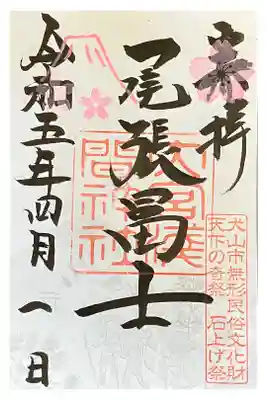 奉拝
犬山市無形民俗文化財
天下の奇祭 石上げ祭
尾張冨士
大宮浅
間神社
令和五年四月一日